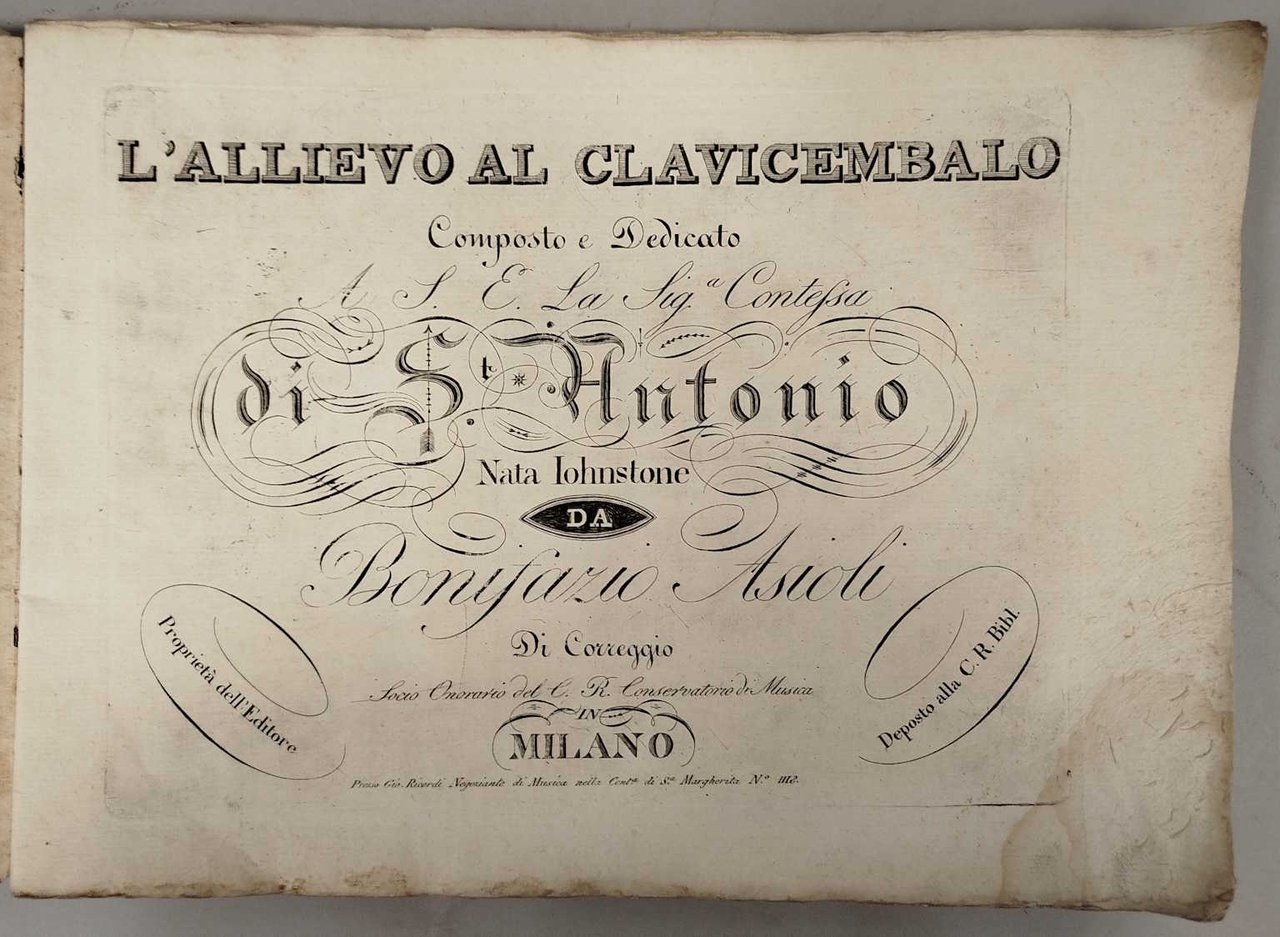 L'ALLIEVO AL CLAVICEMBALO
Composto e Dedicato
A S. E. La Sig.ª Conteſsa
di S.t Antonio
Nata Iohnstone
DA
Bonifazio Asioli
Di Correggio
Socio Onorario del C. R. Conservatorio di Musica
IN
MILANO
Proprietà dell'Editore
Deposto alla C. R. Bibl.
Presso Gio. Ricordi Negoziante di Musica nella Cont.ª di S.ª Margherita N.º 1118.